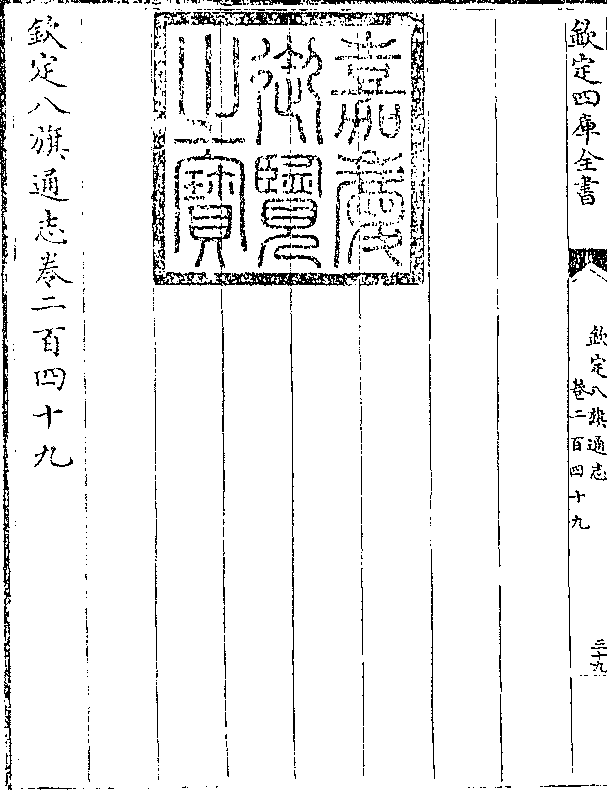 欽定四庫全書
欽定八旗通志
卷二百四十九
三十九
嘉慶
御覽
之寶
欽定八旗通志卷二百四十九